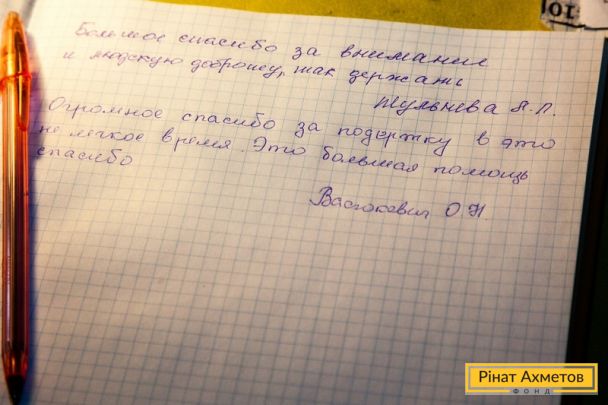 Большое спасибо за внимание
и людскую доброту, так держать
Тульнева Л.Л.
Огромное спасибо за подержку в это
не легкое время. Это большая помощь
спасибо
О.Н.
101
Рінат Ахметов
ФОНД